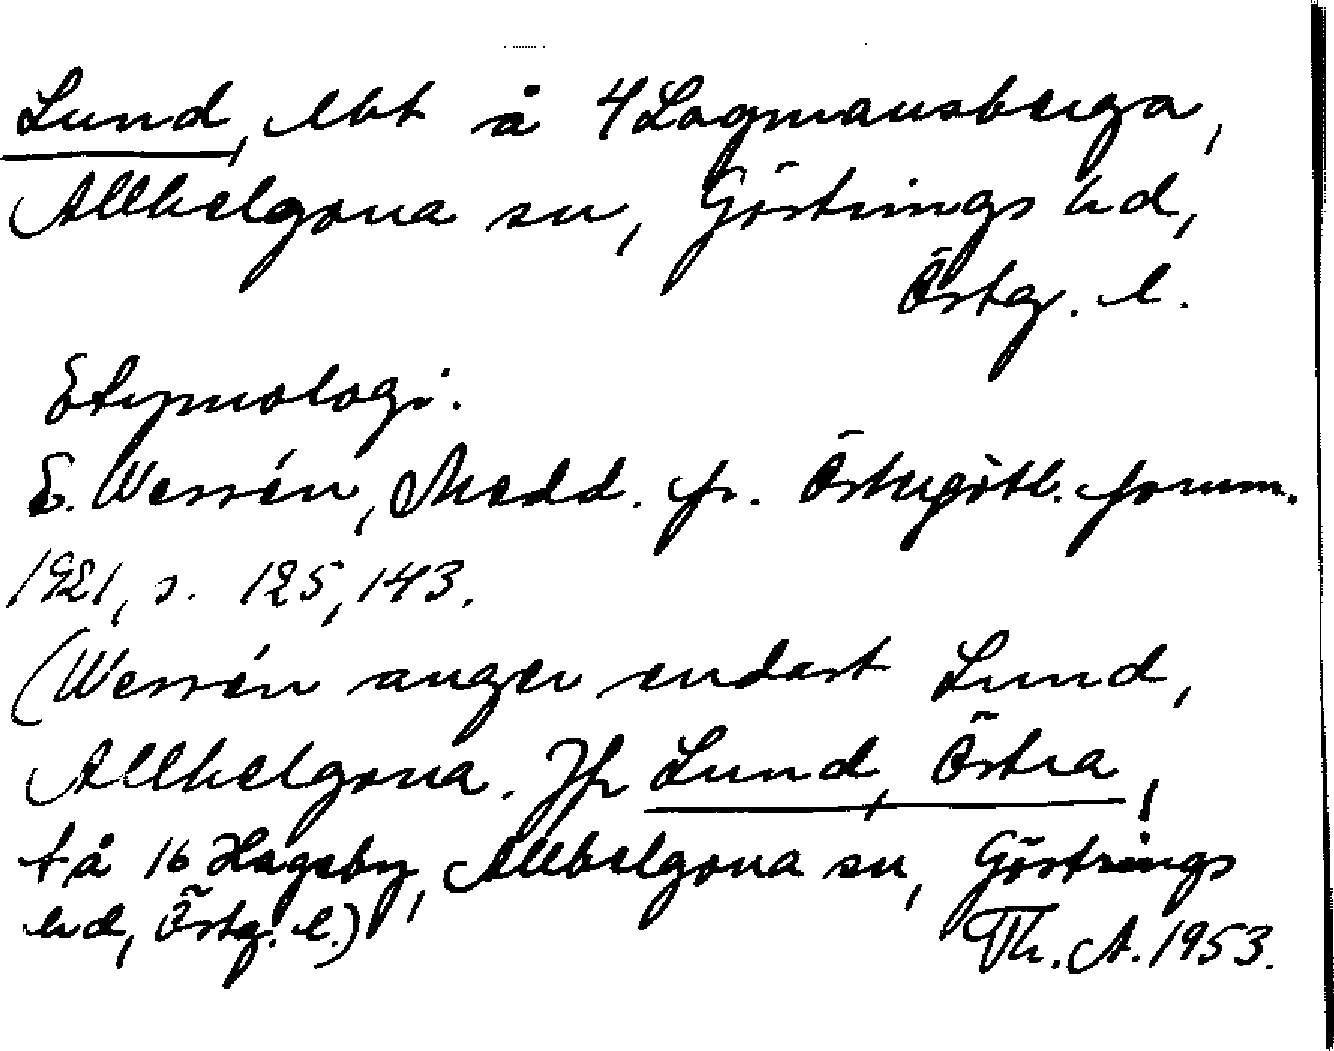 Lund, lbt å 4 Lagmansberga,
Allhelgona sn, Göstrings hd,
Östg. l.
Etymologi.
E. Wessén, Medd. fr. Östergötl. fornm.
1921, s. 125, 143.
(Wessén anger endast Lund,
Allhelgona. Jfr Lund, Östra,
t å 16 Hageby, Allhelgona sn, Göstrings
hd, Östg. l.)
Th. A. 1953.